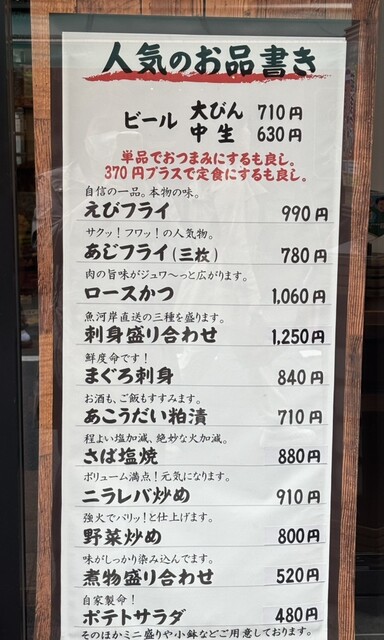 人気のお品書き
ビール 大びん 710円
中生 630円
単品でおつまみにするも良し。
370円プラスで定食にするも良し。
自信の一品。本物の味。
えびフライ 990円
サクッ！フワッ！の人気物。
あじフライ(三枚) 780円
肉の旨味がジュワ〜っと広がります。
ロースかつ 1,060円
魚河岸直送の三種を盛ります。
刺身盛り合わせ 1,250円
鮮度命です！
まぐろ刺身 840円
お酒も、ご飯もすすみます。
あこうだい粕漬 710円
程よい塩加減、絶妙な火加減。
さば塩焼 880円
ボリューム満点！元気になります。
ニラレバ炒め 910円
強火でバリッ！と仕上げます。
野菜炒め 800円
味がしっかり染み込んでます。
煮物盛り合わせ 520円
自家製命！
ポテトサラダ 480円
そのほかミニ盛りや小鉢などご用意しております。